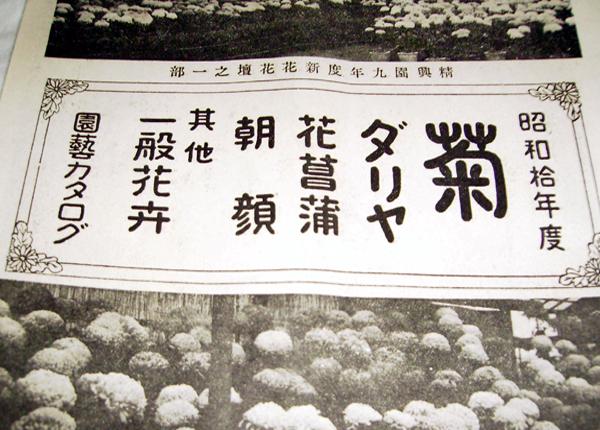 部一之壇花花新度年九園興精
昭和拾年度
菊
ダリヤ
花菖蒲
朝顔
其他
一般花卉
園藝カタログ